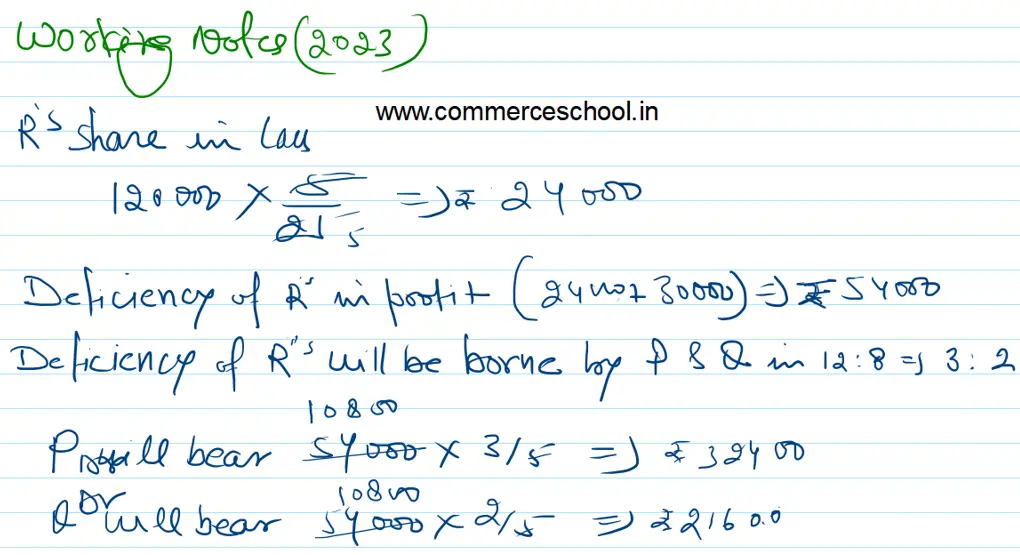 Working Notes (2023)
www.commerceschool.in
R's share in Loss
120000 × 5/25 5 => ₹ 24000
Deficiency of R's in profit (24000+30000) => ₹ 54000
Deficiency of R's will be borne by P & Q in 12:8 => 3:2
10800
P will bear 54000 × 3/5 => ₹ 32400
10800
Q will bear 54000 × 2/5 => ₹ 21600